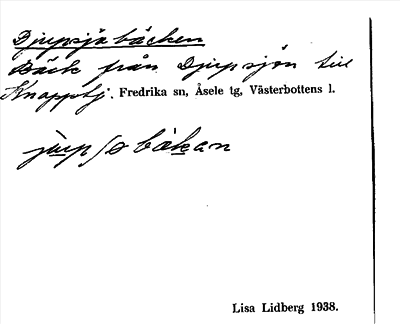 Djupsjöbäcken
Bäck från Djupsjön till
Knapptj. Fredrika sn, Åsele tg, Västerbottens l.
Lisa Lidberg 1938.